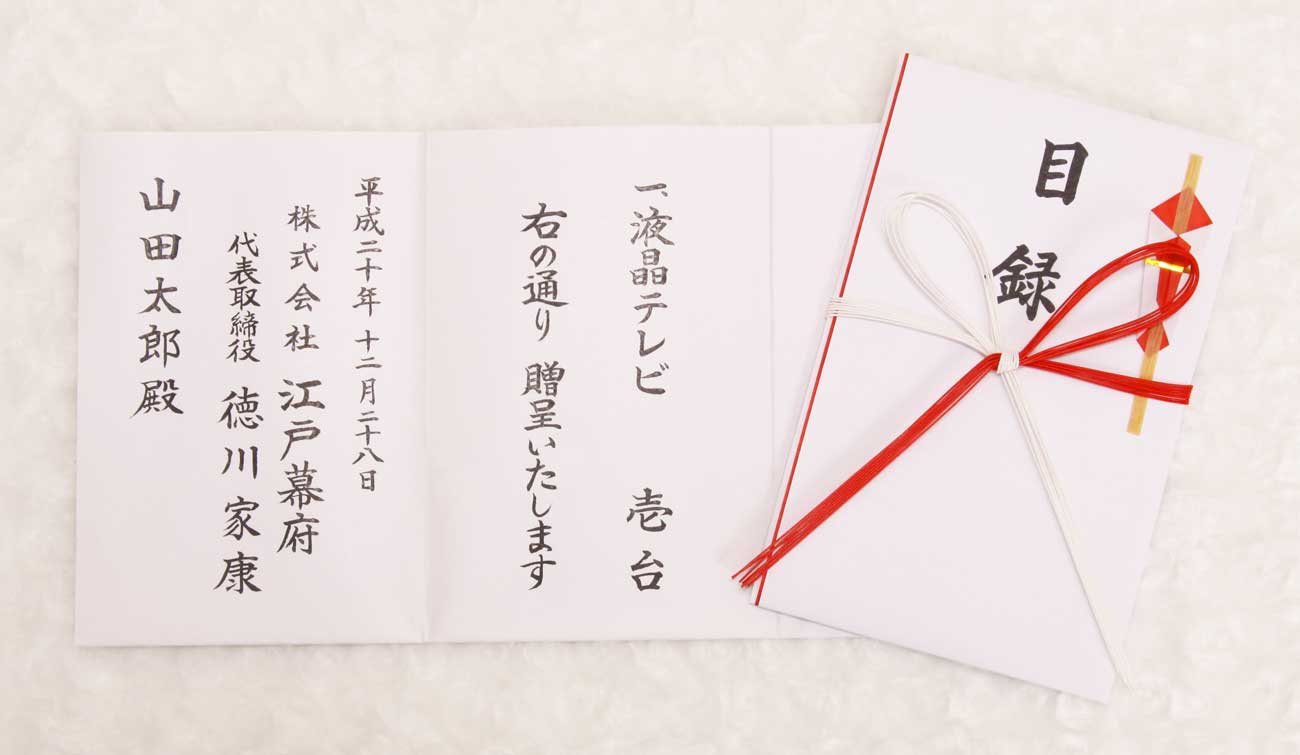 目録
一、液晶テレビ 壱台
右の通り 贈呈いたします
平成二十年 十二月二十八日
株式会社 江戸幕府
代表取締役 徳川家康
山田太郎殿